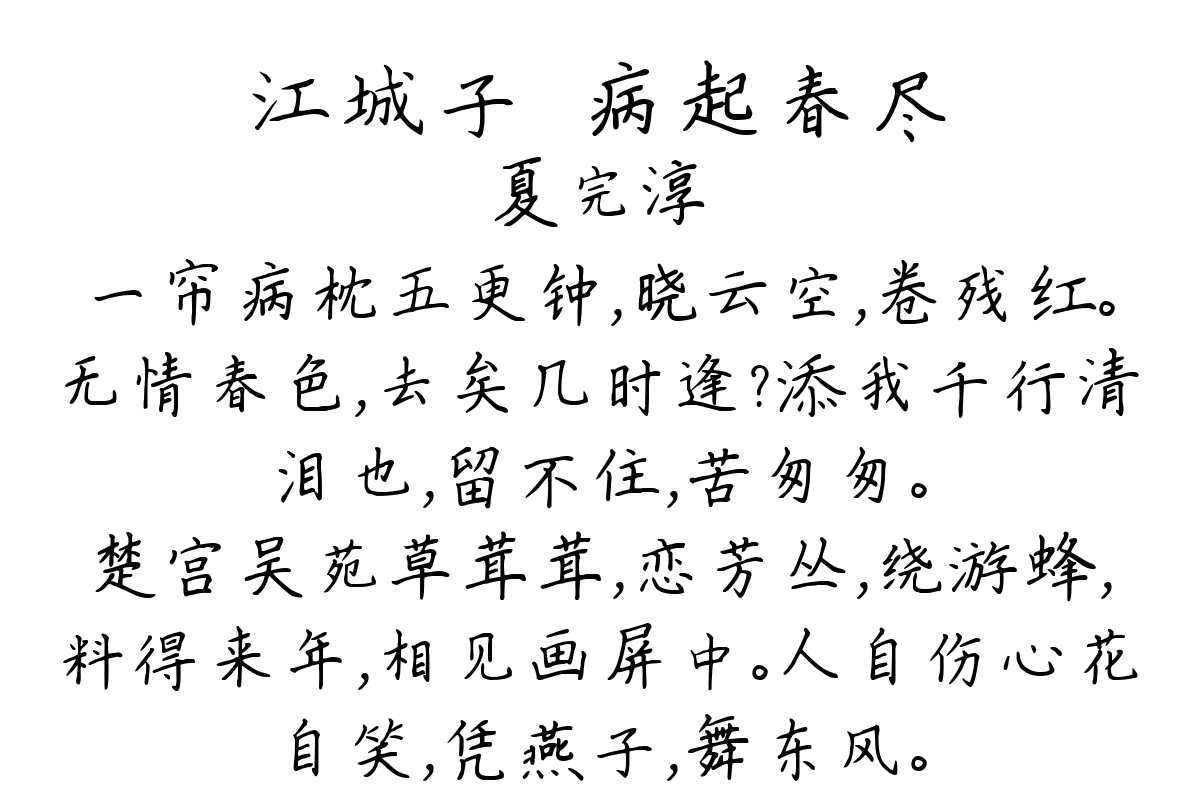 江城子 病起春尽
夏完淳
一帘病枕五更钟,晓云空,卷残红。
无情春色,去矣几时逢?添我千行清
泪也,留不住,苦匆匆。
楚宫吴苑草茸茸,恋芳丛,绕游蜂,
料得来年,相见画屏中。人自伤心花
自笑,凭燕子,舞东风。